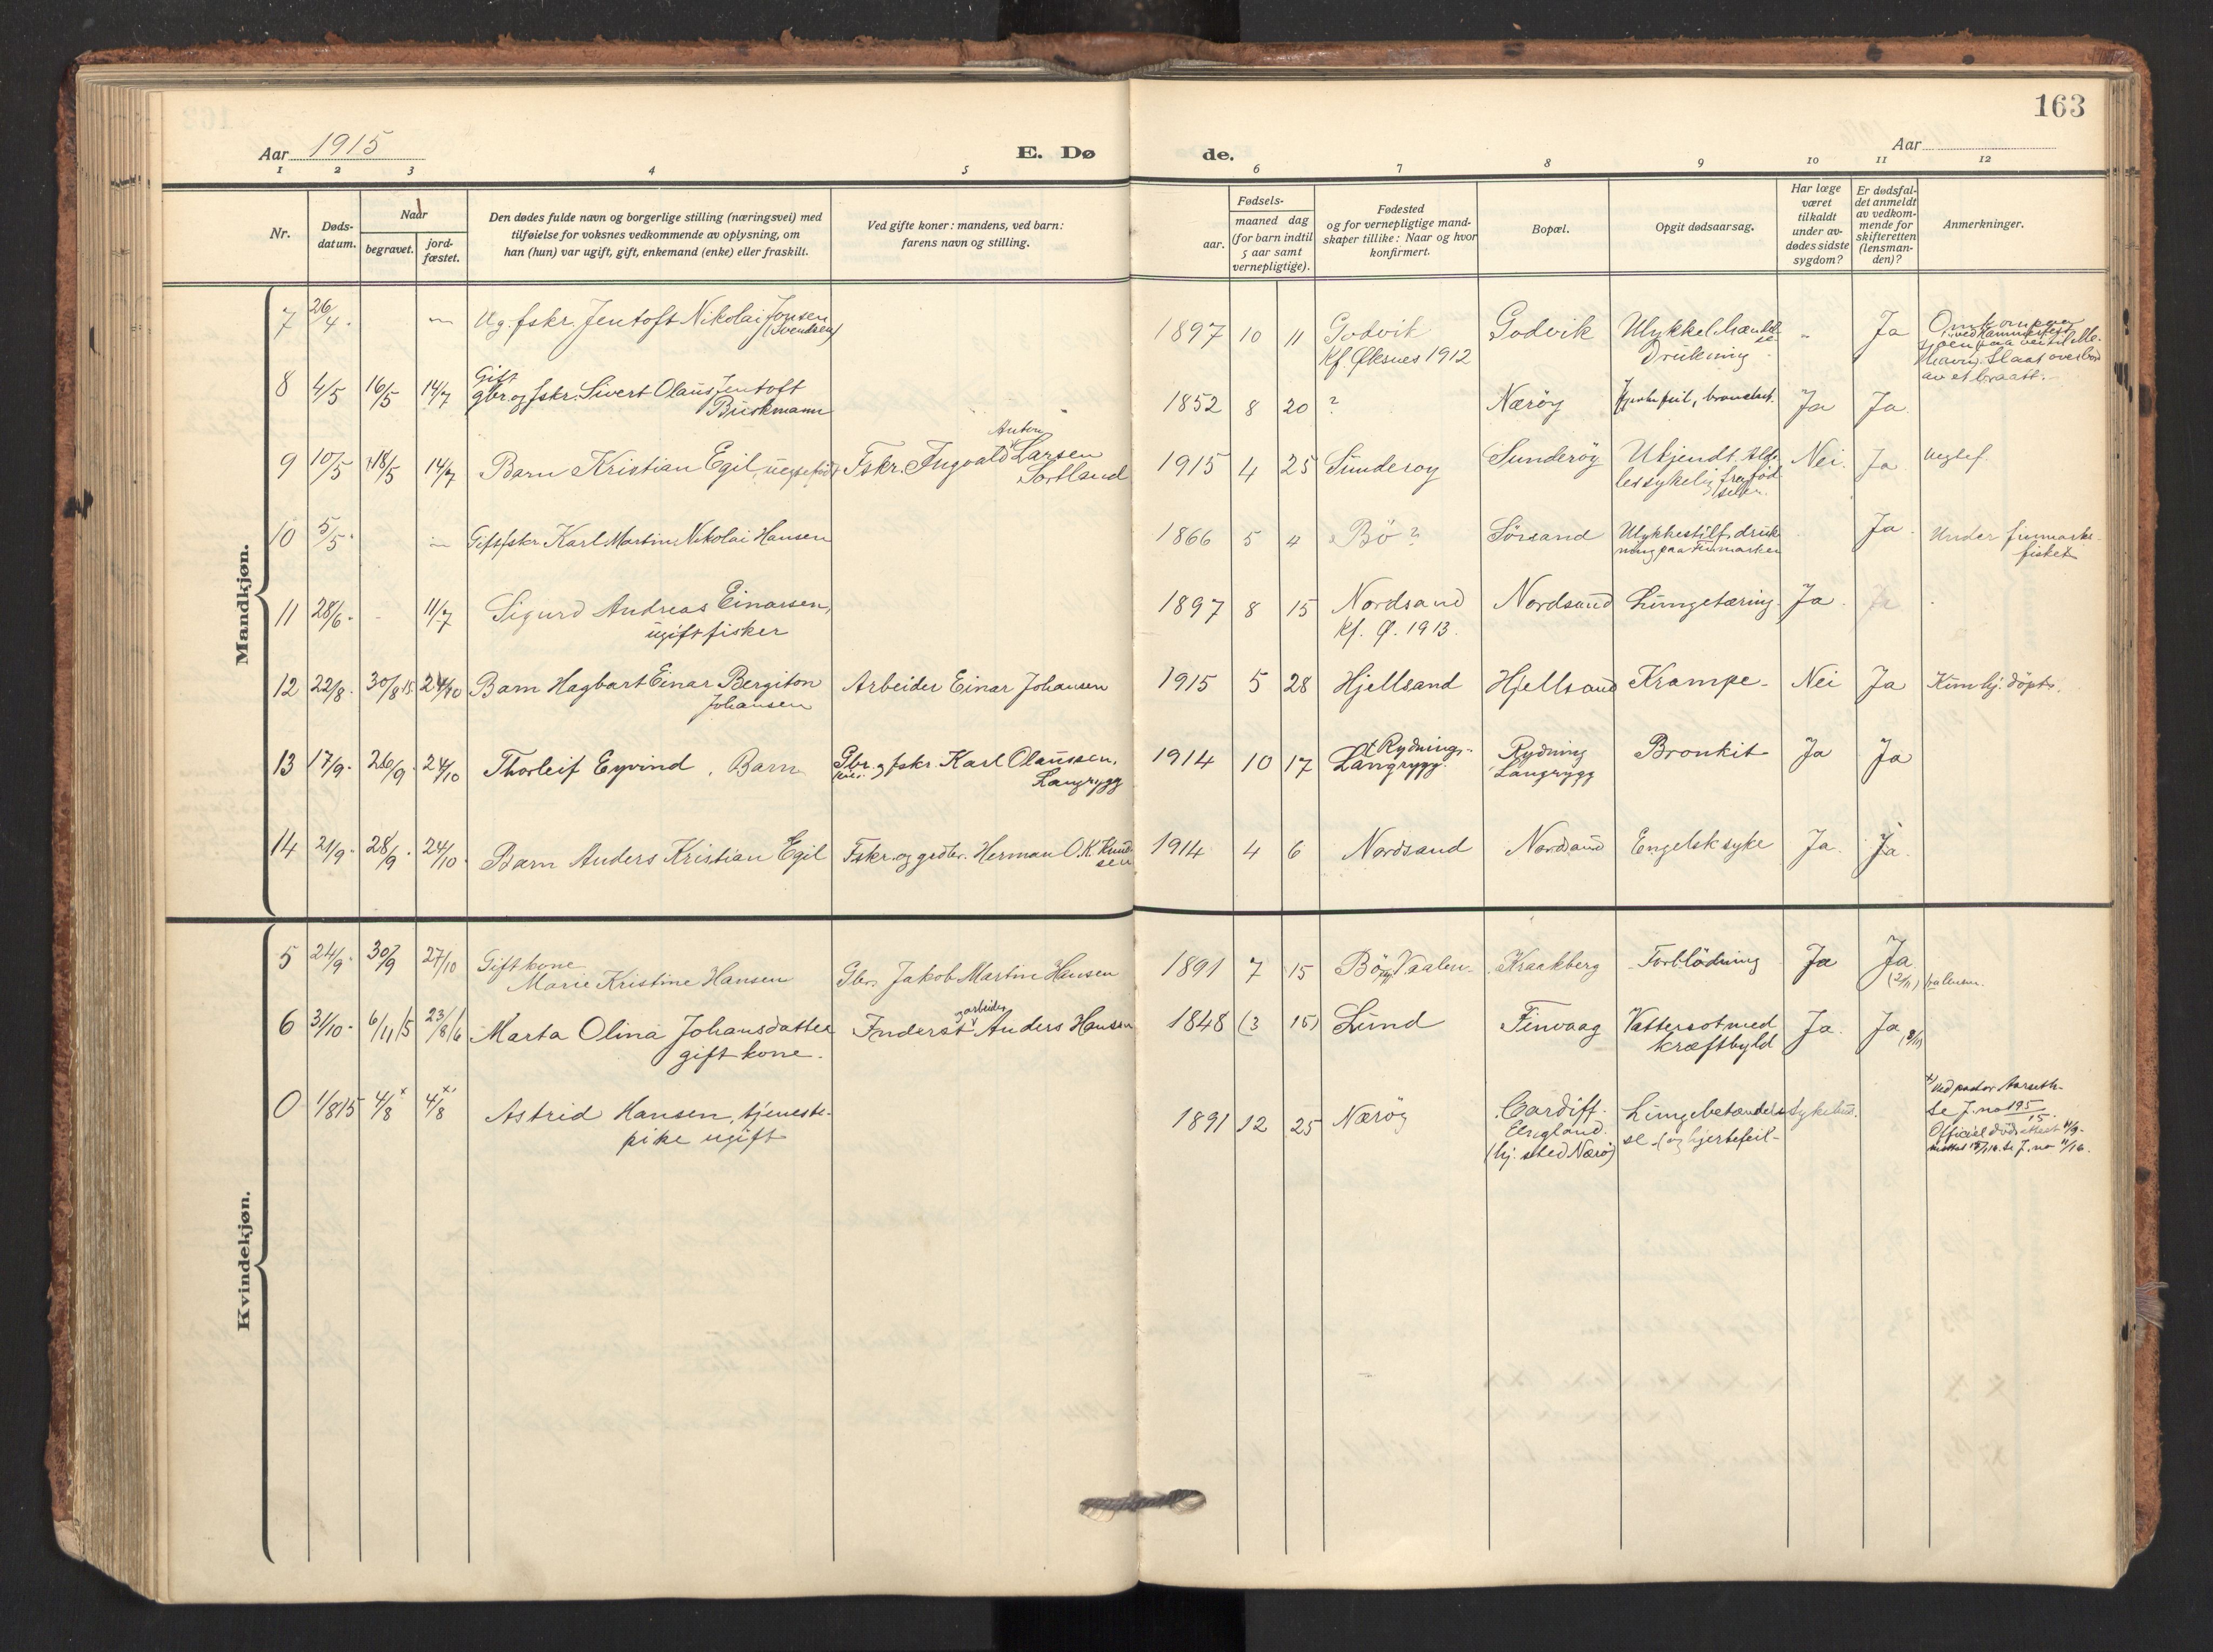 163
Aar 1915
E. Dø
de.
Aar
1 2 3 4 5 6 7 8 9 10 11 12
Nr.
Døds-
datum.
Naar
begravet.
jord-
fæstet.
Den dødes fulde navn og borgerlige stilling (næringsvei) med
tilføielse for voksnes vedkommende av oplysning, om
han (hun) var ugift, gift, enkemand (enke) eller fraskilt.
Ved gifte koner: mandens, ved barn:
farens navn og stilling.
Fødsels-
aar.
maaned dag
(for barn indtil
5 aar samt
vernepligtige).
Fødested
og for vernepligtige mand-
skaper tillike: Naar og hvor
konfirmert.
Bopæl.
Opgit dødsaarsag.
Har læge
været
tilkaldt
under av-
dødes sidste
sygdom?
Er dødsfal-
det anmeldt
av vedkom-
mende for
skifteretten
(lensman-
den)?
Anmerkninger.
Mandkjøn.
7 26/4. Ug. fskr. Jentoft Nikolai Jonsen
(Svendsen)
1897 10 11 Godvik Godvik Ulykkelshændel
se Ja
Kf. Øksnes 1912 Drukning
havn. Slaat overbord
av et braatt.
8 4/5 16/5 14/7 Gift
gbr. og fskr. Sivert Olaus Jentoft
Buskmann
1852 8 20 ? Nærøy Hjertefeil, Ja Ja
9 10/5 18/5 14/7 Barn Kristian Egil, Fskr. Ingvald Larsen
Anton
Sortland
1915 4 25 Sunderøy Sunderøy Ukjendt. Nei. Ja
lessykelig fra fød
selen.
10 5/5. Gift fskr. Karl Martin Nikolai Hansen
1866 5 4 Bö? Sörsand Ulykkestilf. druk
ning paa Finmarken Ja. Under finmarks-
fisket
11 28/6. 11/7 Sigurd Andreas Einarsen,
ugift fisker
1897 8 15 Nordsand Nordsand Lungetæring. Ja. Ja
Kf. Ø. 1913.
12 22/8. 30/8 15. 24/10 Barn Hagbart Einar Bergiton
Johansen
Arbeider Einar Johansen
1915 5 28 Hjellsand Hjellsand Krampe. Nei Ja Kun hj. döpt.
13 17/9. 26/9. 24/10 Thorleif Eyvind, Barn Gbr. og fskr. Karl Olaussen,
Langrygg
1914 10 17 Rydning Rydning Bronkit Ja Ja
Langrygg. Langrygg
14 21/9. 28/9. 24/10. Barn Anders Kristian Egil Fskr. og grdbr. Herman O. K. Knud
sen
1914 4 6 Nordsand Nordsand Engelsk syke Ja. Ja.
Kvindekjøn.
5 24/9. 30/9 27/10 Gift kone
Marie Kristine Hansen Gbr. Jakob Martin Hansen
1891 7 15 Bö, Vaalen. Kraakberg Forblödning Ja Ja
(2/11)
6 31/10. 6/11 15 23/8 16 Marta Olina Johansdatter
gift kone.
Inderst og arbeider Anders Hansen
1848 (3 15) Lund Finvaag Vattersot med
kræftbyld Ja. Ja
0 1/8 15 4/8 x 4/8 x Astrid Hansen, tjeneste-
pike ugift
1891 12 25 Nærøy Cardiff. Lungebetændel-
se (og hjertefeil- Sykehus.
England.
(hj. sted Nærö)
x) Ved pastor Aarseth.
Se J. no 195/15.
Officiel dödsattest 4/9.